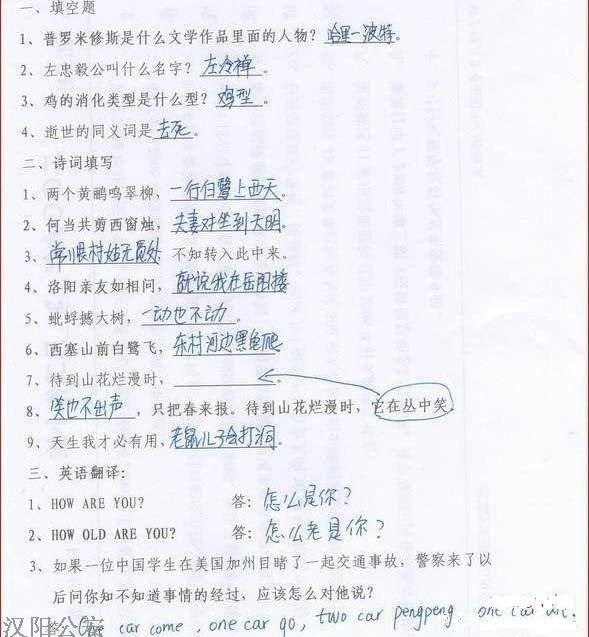 一、填空题
1、普罗米修斯是什么文学作品里面的人物？哈里—波特。
2、左忠毅公叫什么名字？左冷禅。
3、鸡的消化类型是什么型？鸡型。
4、逝世的同义词是去死。
二、诗词填写
1、两个黄鹂鸣翠柳，一行白鹭上西天。
2、何当共剪西窗烛，夫妻对坐到天明。
3、常恨村姑无觅处 不知转入此中来。
4、洛阳亲友如相问，就说我在岳阳楼
5、蚍蜉撼大树，一动也不动。
6、西塞山前白鹭飞，东村河边黑龟爬
7、待到山花烂漫时，。
8、笑也不出声，只把春来报。待到山花烂漫时，它在丛中笑。
9、天生我才必有用，老鼠儿子会打洞。
三、英语翻译：
1、HOW ARE YOU? 答：怎么是你？
2、HOW OLD ARE YOU? 答：怎么老是你？
3、如果一位中国学生在美国加州目睹了一起交通事故，警察来了以
后问你知不知道事情的经过，应该怎么对他说？
car come, one car go, two car pengpeng, one car die.
汉阳公安